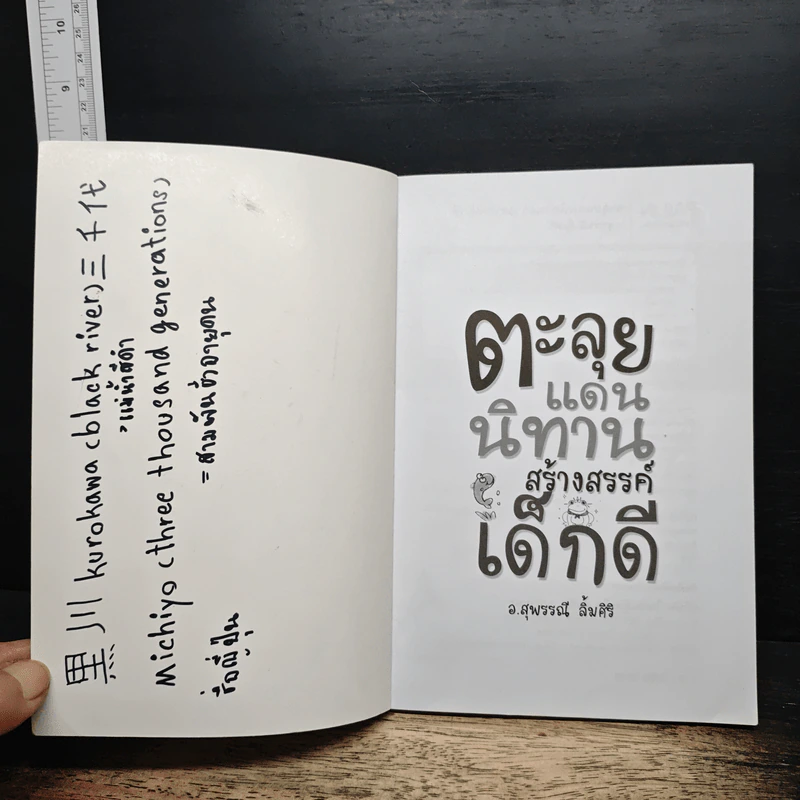 黒川 kurokawa (black river) 三千代
= แม่น้ำสีดำ
Michiyo (three thousand generations)
= สามพันชั่วอายุคน
ชื่อญี่ปุ่น
ตะลุย
แดน
นิทาน
สร้างสรรค์
เด็กดี
อ.สุพรรณี ลิ้มศิริ
10
9
26
25
24
23
22
21